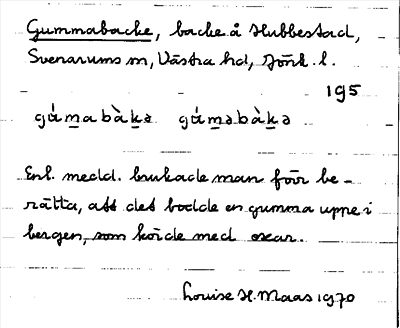 Gummabacke, backe å Hubbestad,
Svenarums sn, Västra hd, Jönk. l.
195
gúm̲abàk̲ə gúm̲əbàk̲ə
Enl. medd. brukade man förr be-
rätta, att det bodde en gumma uppe i
bergen, som körde med oxar.
Louise H. Maas 1970